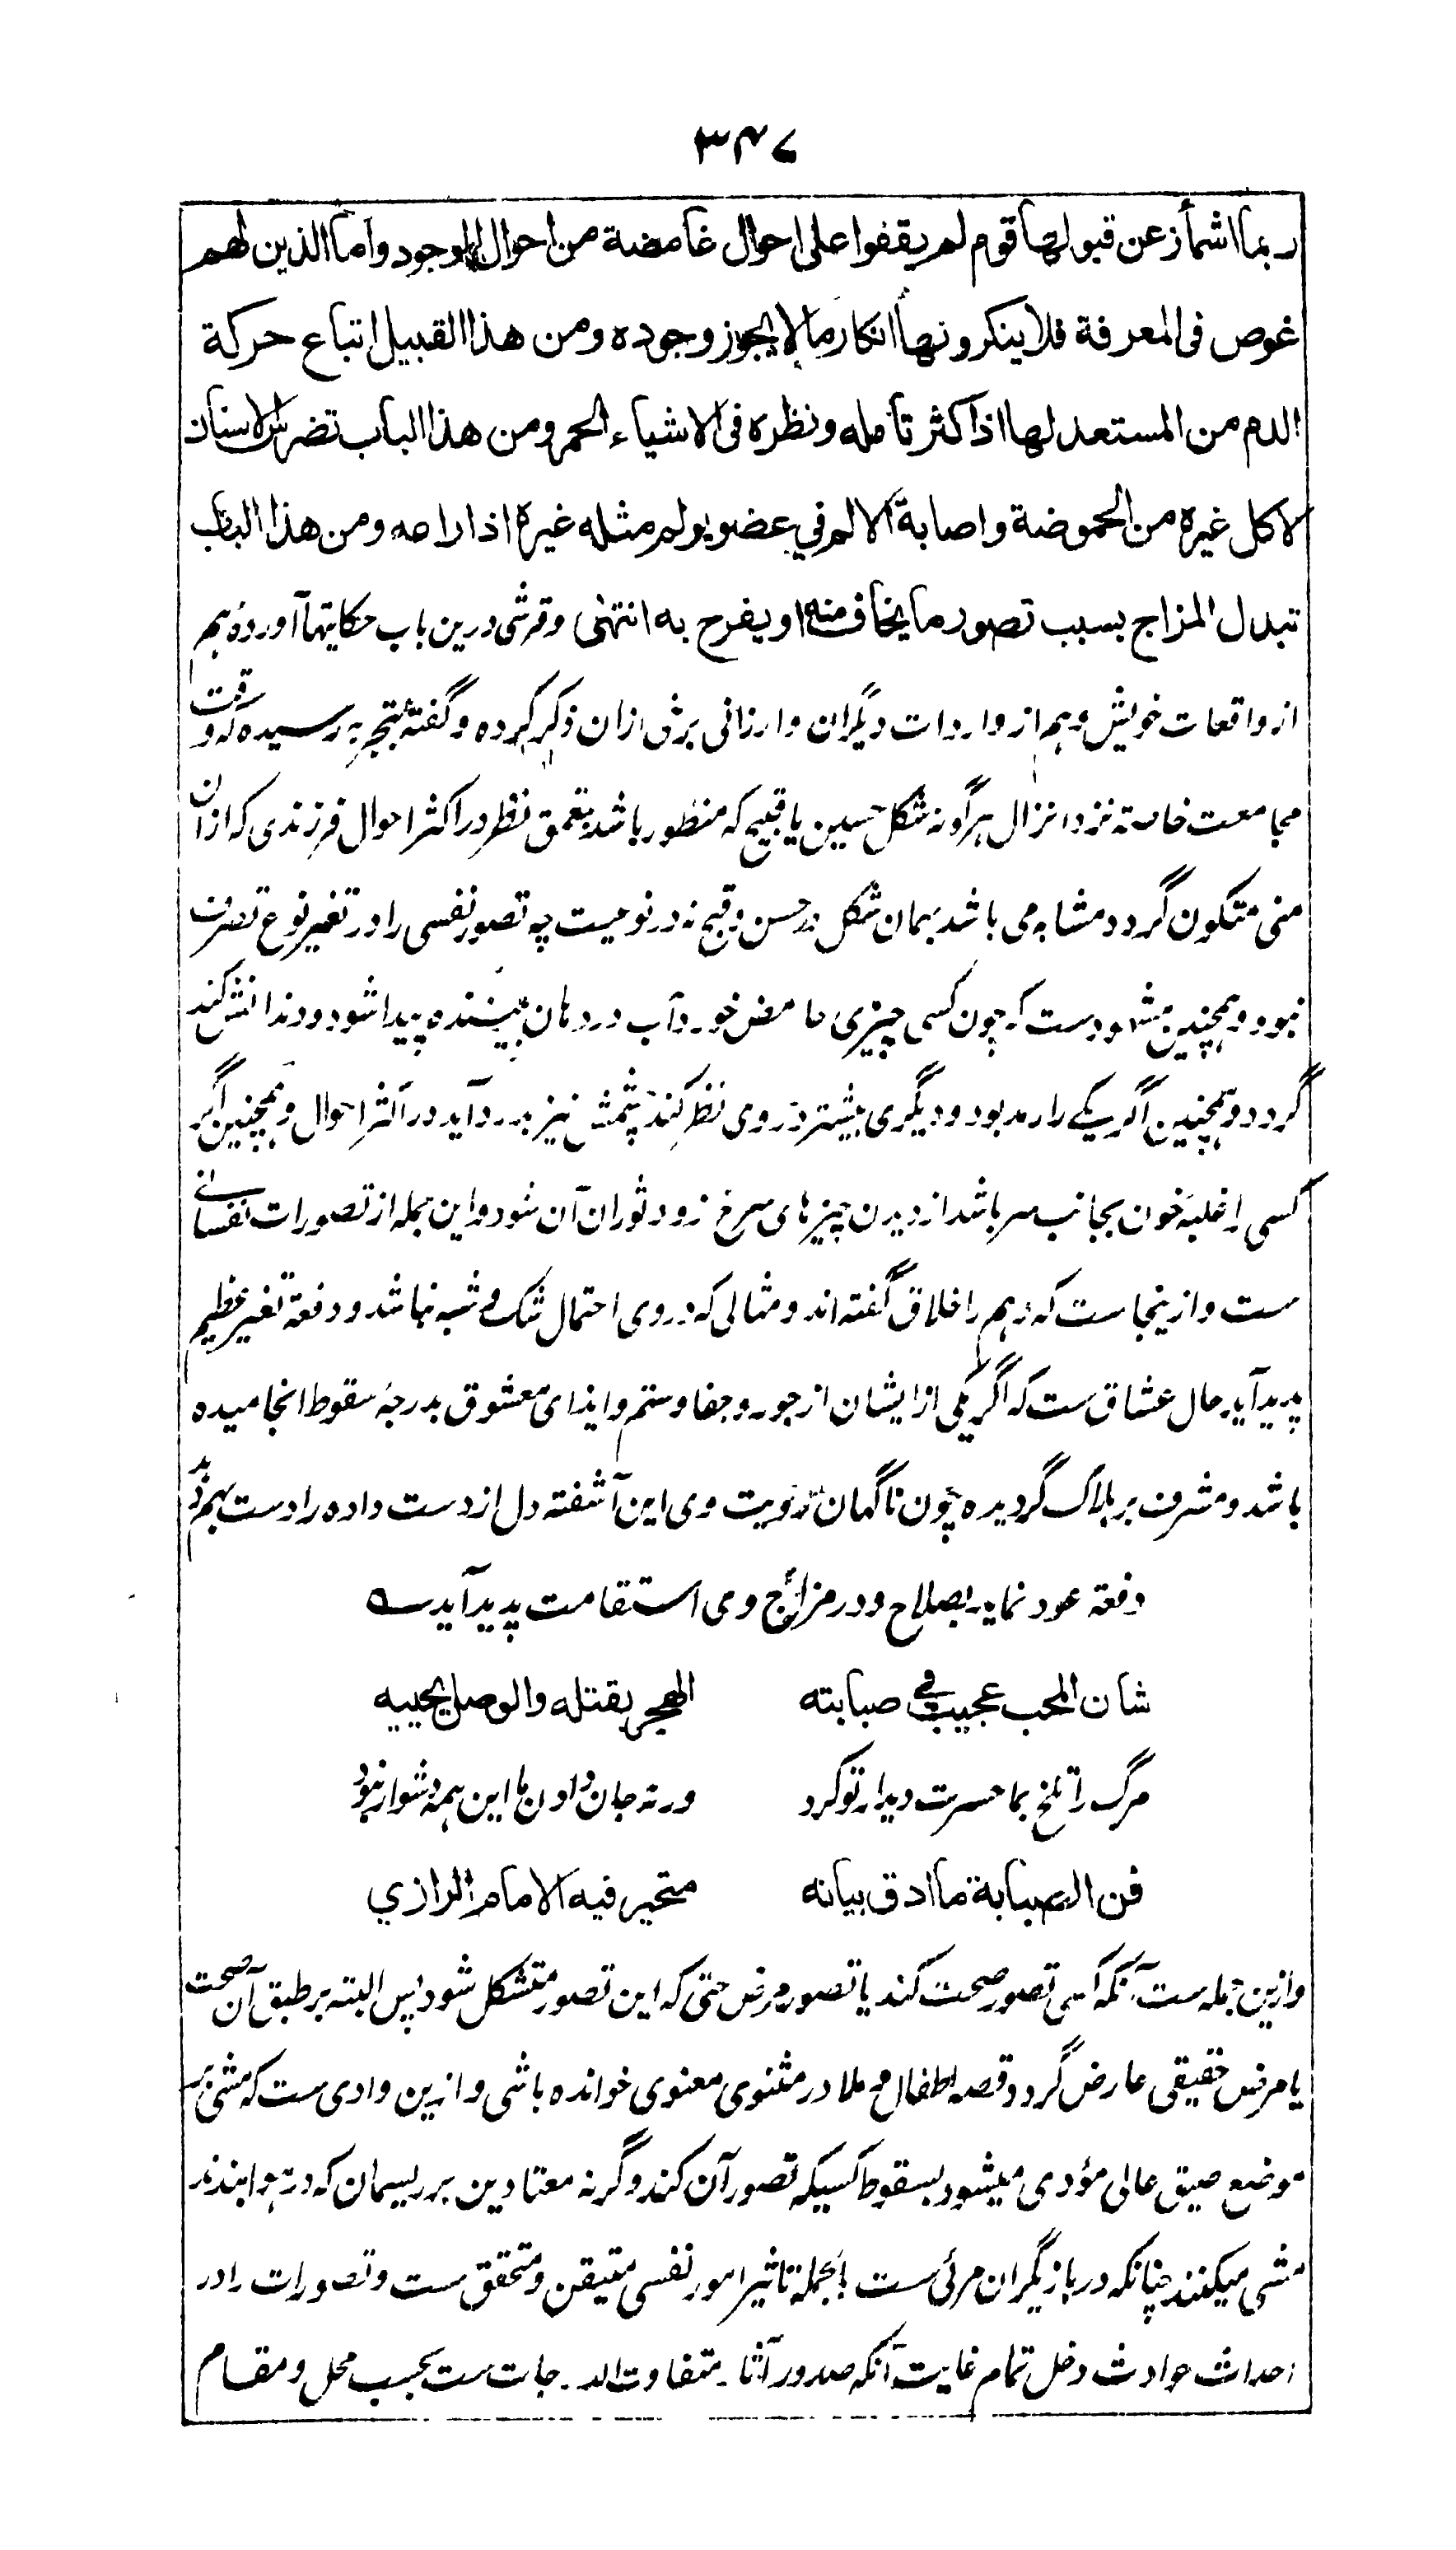 ۳۴۷
ربما اشمأز عن قبولها قوم لم يقفوا على احوال غامضة من احوال الوجود واما الذين لهم
غوص فى المعرفة فلا ينكرونها انكار ما لا يجوز وجوده ومن هذا القبيل اتباع حركة
الدم من المستعد لها اذا كثر تأمله ونظره فى الاشياء الحمر ومن هذا الباب تضرس الاسنان
لاكل غيره من الحموضة واصابة الالم في عضو يولم مثله غيره اذا راه ومن هذا الباب
تبدل المزاج بسبب تصور ما يخاف منه او يفرح به انتهى وقرشی درین باب حکایتها آورده هم
از واقعات خویش و هم از واردات دیگران وارزانی برخی ازان ذکر کرده و گفته بتجربه رسیده که وقت
مجامعت خاصة نزد انزال هرگونه شکل حسین یا قبیح که منظور باشد بتعمق نظر در اکثر احوال فرزندی که از ان
منی متکون گردد مشابه می باشد بهمان شکل در حسن و قبح نه در نوعیت چه تصور نفسی را در تغیر نوع تصرف
نبود و همچنین مشهودست که چون کسی چیزی حامض خورد آب در دهان بیننده پیدا شود و دندانش کند
گردد و همچنین اگر یکی را رمد بود و دیگری بیشتر در وی نظر کند چشمش نیز بدرد آید در اکثر احوال و همچنین اگر
کسی را غلبه خون بجانب سر باشد از دیدن چیزهای سرخ زود ثوران آن شود و این جمله از تصورات نفسانی
ست و ازینجاست که وهم را خلاق گفته اند و مثالی که در وی احتمال شک و شبه نباشد و دفعة تغیر عظیم
پدید آید حال عشاق ست که اگر یکی از ایشان از جور و جفا و ستم و ایذای معشوق بدرجهٔ سقوط انجامیده
باشد و مشرف بر هلاک گردیده چون ناگهان رویت وی این آشفته دل از دست داده را دست بهم دهد
دفعة عود نماید بصلاح و در مزاج وی استقامت پدید آید ؎
شان المحب عجيب في صبابته الهجر يقتله والوصل يحييه
مرگ را تلخ بما حسرت دیدار تو کرد ورنه جان دادن ما این همه دشوار نبود
فن الصبابة ما ادق بيانه متحير فيه الامام الرازي
و ازین جمله ست آنکه کسی تصور صحت کند یا تصور مرض حتی که این تصور متشکل شود پس البته بر طبق آن صحت
یا مرض حقیقی عارض گردد و قصه اطفال و ملا در مثنوی معنوی خوانده باشی و ازین وادی ست که مشی بر
موضع ضیق عالی مؤدی میشود بسقوط کسیکه تصور آن کند وگرنه معتادین بر ریسمان که در هوا بندند
مشی میکنند چنانکه در بازیگران مرئی ست بالجمله تاثیر امور نفسی متیقن و متحقق ست و تصورات را در
احداث حوادث دخل تمام غایت آنکه صدور آثار متفاوت الدرجات ست بحسب محل و مقام